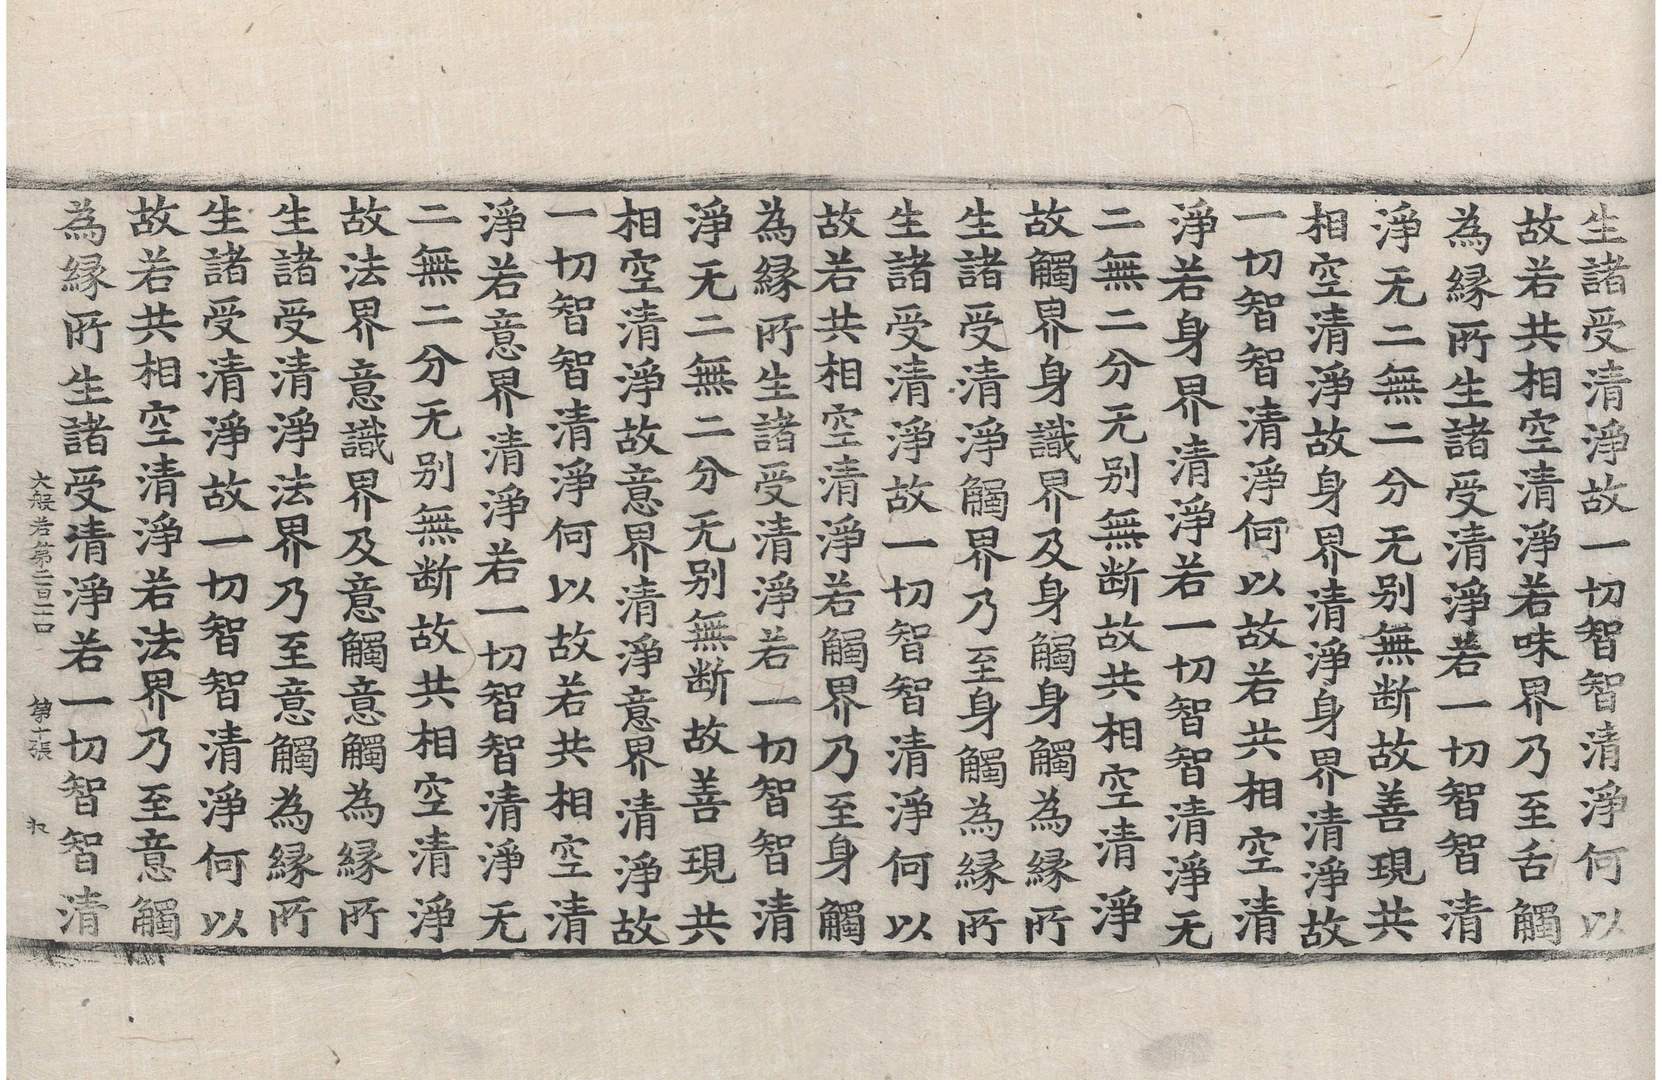 生諸受清淨故一切智智清淨何以
故若共相空清淨若味界乃至舌觸
為縁所生諸受清淨若一切智智清
淨无二無二分无别無断故善現共
相空清淨故身界清淨身界清淨故
一切智智清淨何以故若共相空清
淨若身界清淨若一切智智清淨无
二無二分无别無断故共相空清淨
故觸界身識界及身觸身觸為縁所
生諸受清淨觸界乃至身觸為縁所
生諸受清淨故一切智智清淨何以
故若共相空清淨若觸界乃至身觸
為縁所生諸受清淨若一切智智清
淨无二無二分无别無断故善現共
相空清淨故意界清淨意界清淨故
一切智智清淨何以故若共相空清
淨若意界清淨若一切智智清淨无
二無二分无别無断故共相空清淨
故法界意識界及意觸意觸為縁所
生諸受清淨法界乃至意觸為縁所
生諸受清淨故一切智智清淨何以
故若共相空清淨若法界乃至意觸
為縁所生諸受清淨若一切智智清
大般若第二百二十 第十張